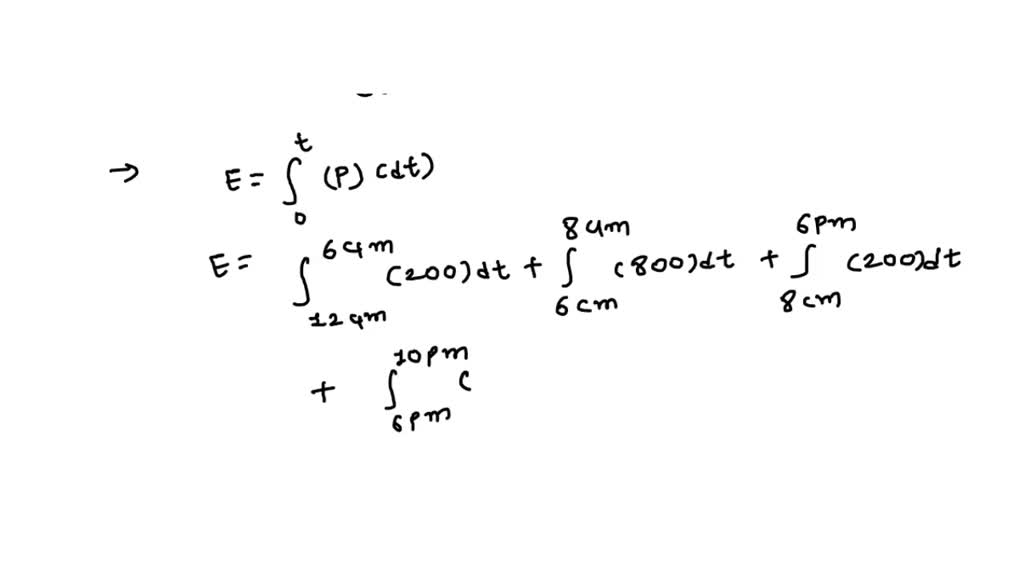 → E = ∫₀ᵗ (P) (dt)
E = ∫_{12am}^{6am} (200) dt + ∫_{6am}^{8am} (800) dt + ∫_{8am}^{6pm} (200) dt
+ ∫_{6pm}^{10pm} (